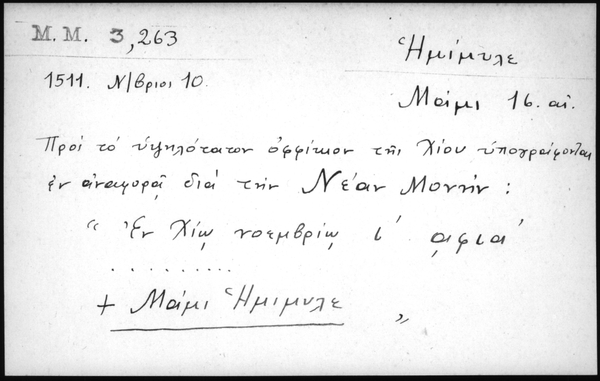 Μ. Μ. 3,263
Ἡμίμυλε
1511. Ν/βριος 10.
Μάμι 16. αἰ.
Πρὸς τὸ ὑψηλότατον ὀφφίκιον τῆς Χίου ὑπογράφονται
ἐν ἀναφορᾷ διὰ τὴν Νέαν Μονήν :
“ Ἐν Χίῳ νοεμβρίῳ ι΄ ͵αφια΄
. . . . . . . . .
+ Μάμι Ἡμιμυλε „